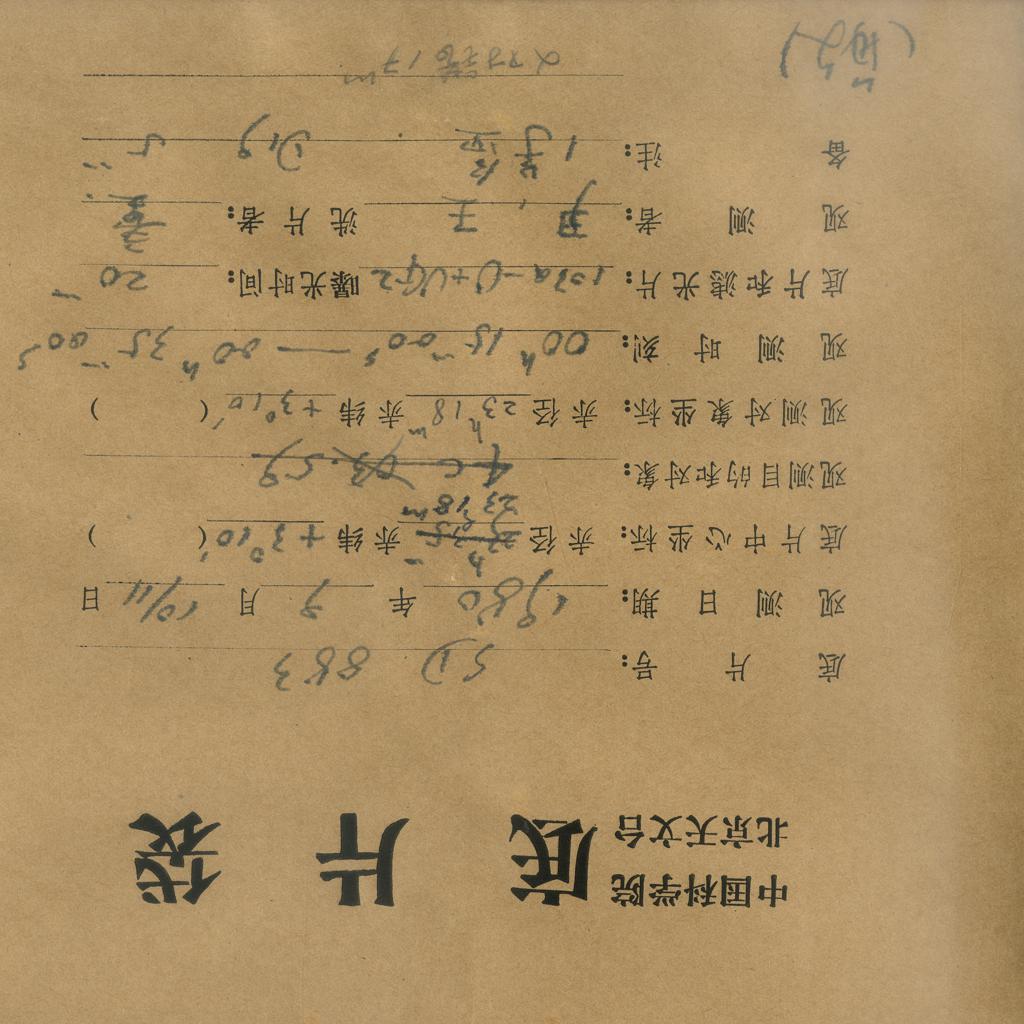 中国科学院
北京天文台
底片袋
底片号: 5D 883
观测日期: 1980 年 9 月 10/11 日
底片中心坐标: 赤经 23h18m 赤纬 +3°10′ ( )
观测目的和对象:
观测对象坐标: 赤经 23h18m 赤纬 +3°10′ ( )
观测时刻: 00h15m00s — 00h35m00s
底片和滤光片: 103a-O+UG2 曝光时间: 20m
观测者: 王 洗片者:
备注: 1 D19 5m